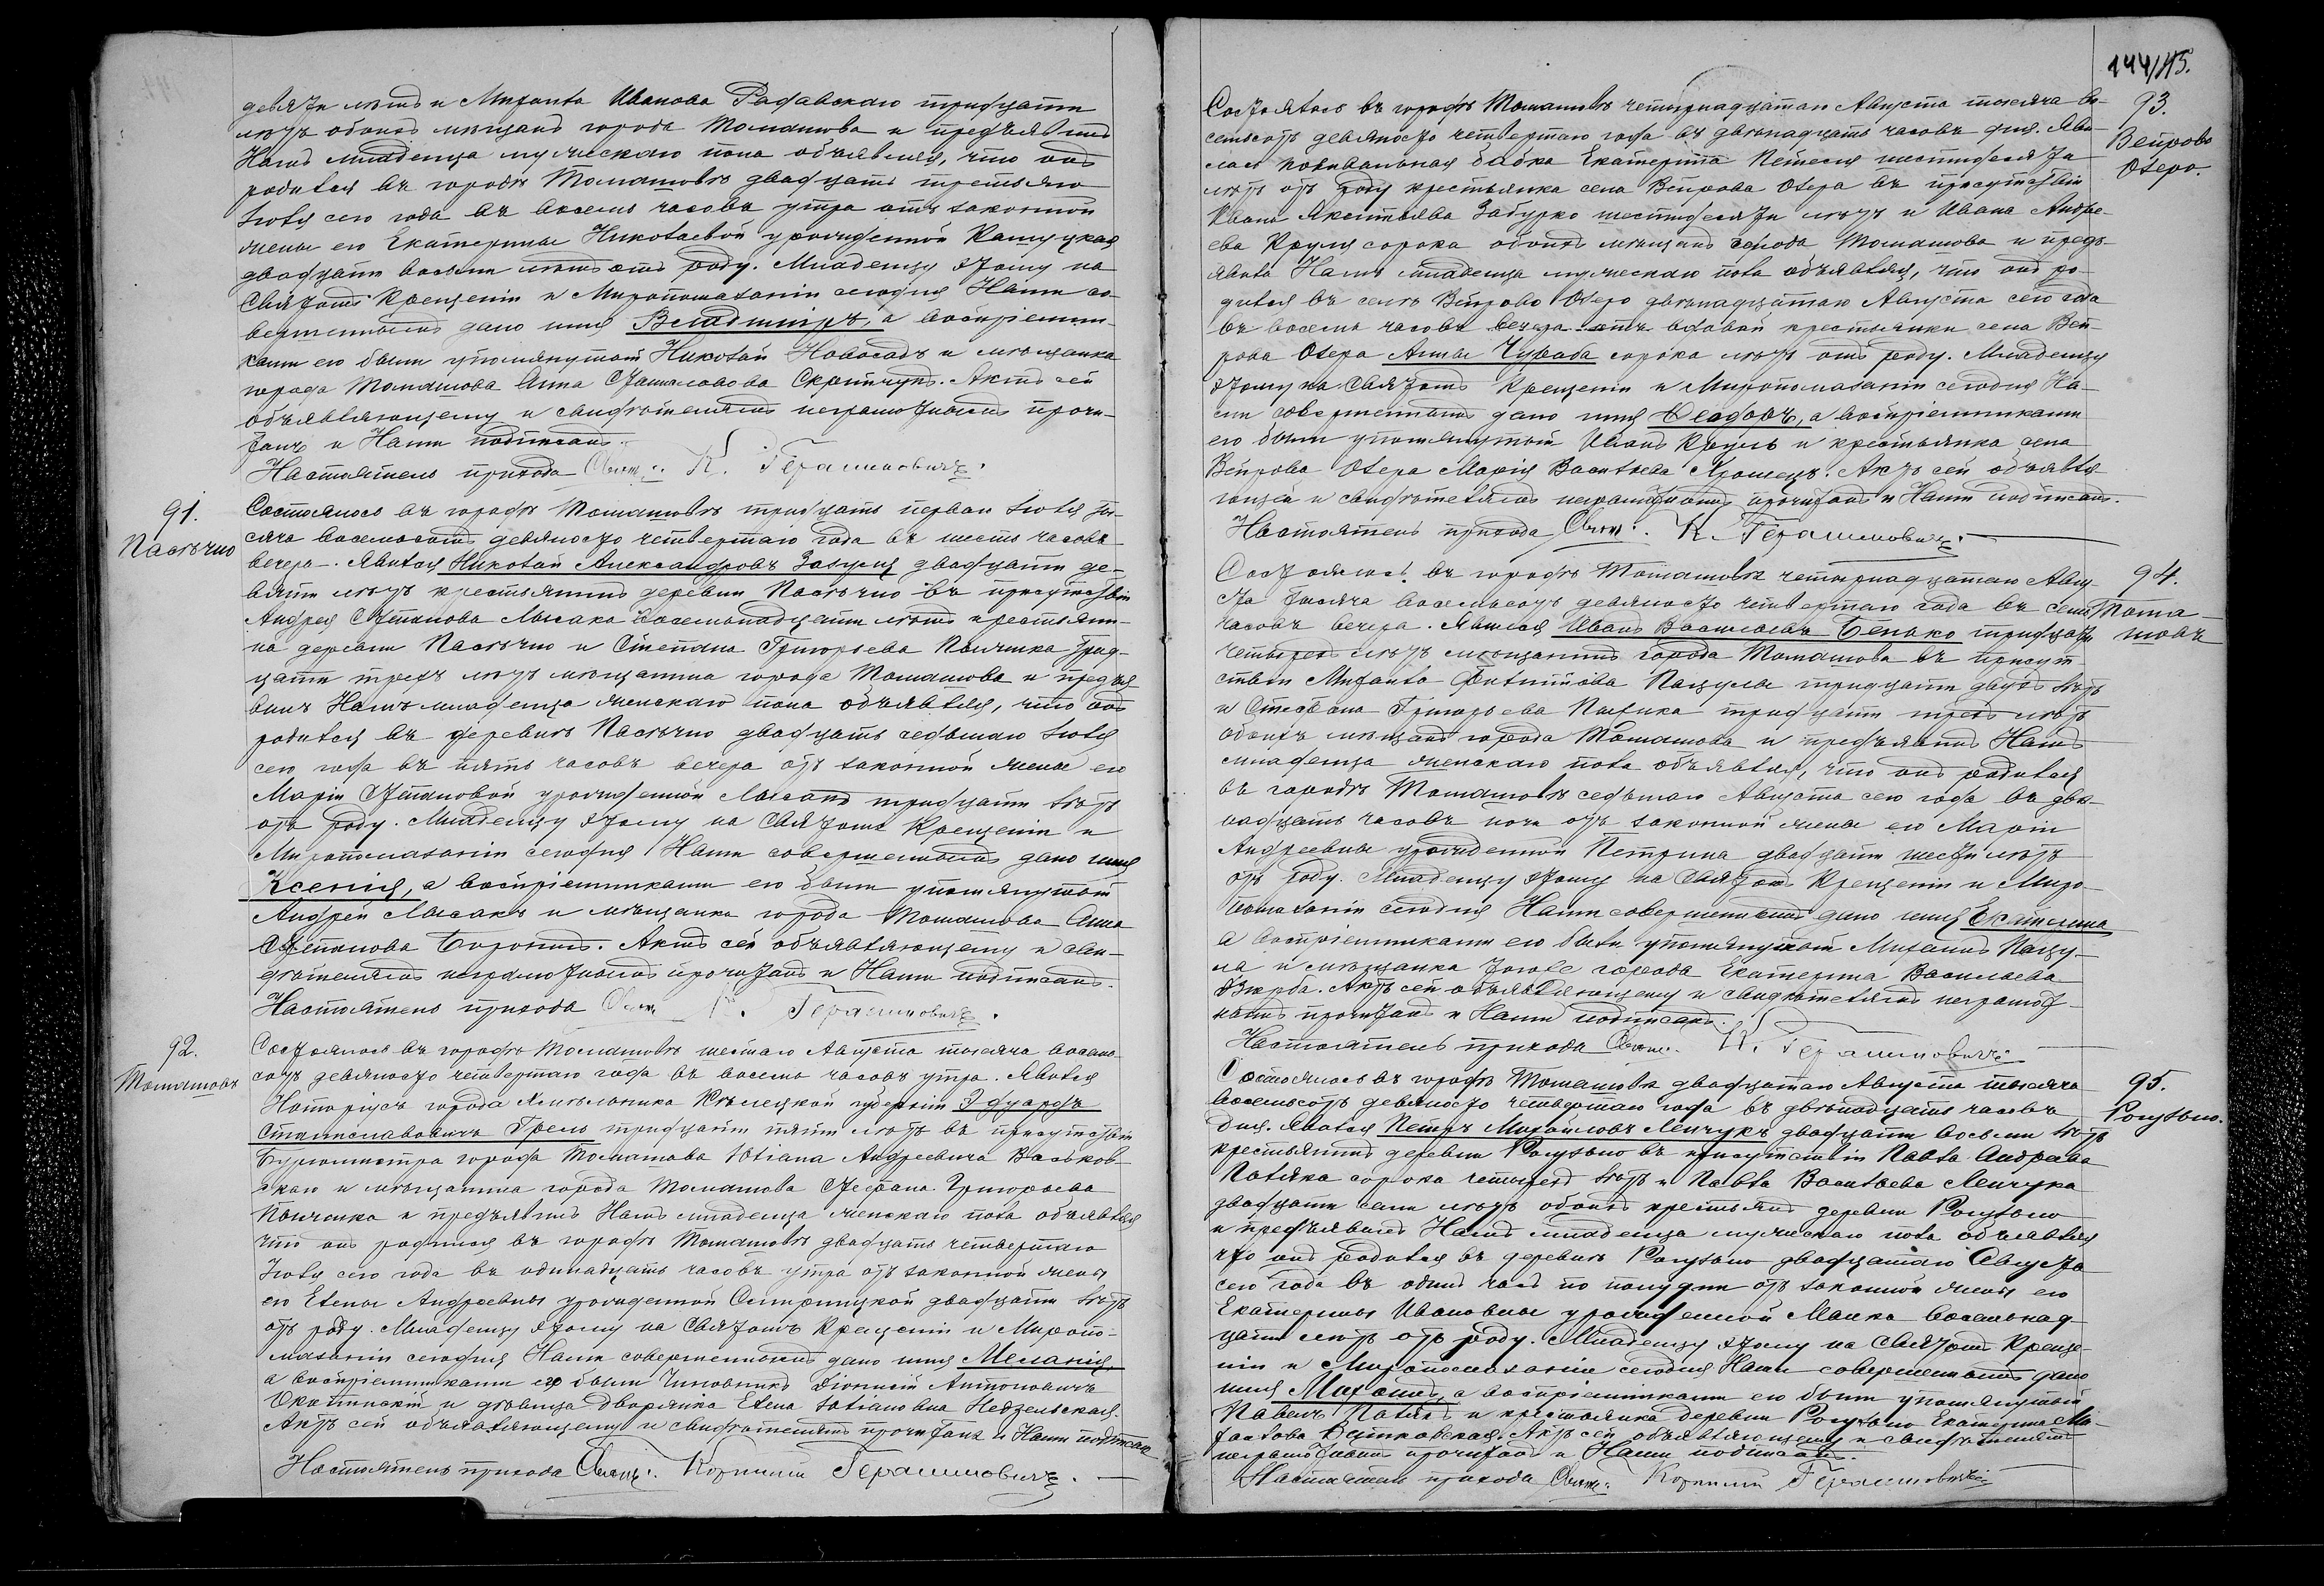 девяти летъ и Михаила Иванова Рафавскаго тридцати
летъ обоихъ мѣщанъ города Томашова и предъявилъ
Намъ младенца мужескаго пола объявляя, что онъ
родился въ городѣ Томашовѣ двадцать третьяго
Iюля сего года въ восемь часовъ утра отъ законной
жены его Екатерины Николаевой урожденной
двадцати восьми лѣтъ отъ роду. Младенцу этому на
Святомъ Крещенiи и Мѵропомазанiи сегодня Нами со-
вершенномъ дано имя Владимiръ, а воспрiемни-
ками его были упомянутый Николай Новосадъ и мѣщанка
города Томашова Анна Скрыпчукъ. Актъ сей
объявляющему и свидѣтелямъ неграмотнымъ прочи-
танъ и Нами подписанъ.
Настоятель прихода Свящ: К. Герасимовичъ.
91.
Пасѣчно
Состоялось въ городѣ Томашовѣ тридцать перваго Iюля ты-
сяча восемьсотъ девяносто четвертаго года въ шесть часовъ
вечера. Явился Николай Александровъ Заяцъ двадцати де-
вяти лѣтъ крестьянинъ деревни Пасѣчно въ присутствiи
Андрея Степанова Лысака восемьнадцати лѣтъ крестьяни-
на деревни Пасѣчно и Степана Григорьева Пычика трид-
цати трехъ лѣтъ мѣщанина города Томашова и предъя-
вилъ Намъ младенца женскаго пола объявляя, что онъ
родился въ деревнѣ Пасѣчно двадцать седьмаго Iюля
сего года въ пять часовъ вечера отъ законной жены его
Марiи Степановой урожденной Лысакъ тридцати лѣтъ
отъ роду. Младенцу этому на Святомъ Крещенiи и
Мѵропомазанiи сегодня Нами совершенномъ дано имя
Ксенiя, а воспрiемниками его были упомянутый
Андрей Лысакъ и мѣщанка города Томашова Анна
Степанова. Актъ сей объявляющему и сви-
дѣтелямъ неграмотнымъ прочитанъ и Нами подписанъ.
Настоятель прихода Свящ К. Герасимовичъ.
92.
Томашовъ
Состоялось въ городѣ Томашовѣ шестаго Августа тысяча восемь-
сотъ девяносто четвертаго года въ восемь часовъ утра. Явился
Нотарiусъ города Хмѣльника Кѣлецкой губернiи Эдуардъ
Станиславовичъ Грель тридцати пяти лѣтъ въ присутствiи
Бургомистра города Томашова Юлiана Андреевича Васьков-
скаго и мѣщанина города Томашова Стефана Григорьева
Пычика и предъявилъ Намъ младенца женскаго пола объявляя
что онъ родился въ городѣ Томашовѣ двадцать четвертаго
Iюля сего года въ одинадцать часовъ утра отъ законной жены
его Елены Андреевны урожденной двадцати лѣтъ
отъ роду. Младенцу этому на Святомъ Крещенiи и Мѵропо-
мазанiи сегодня Нами совершенномъ дано имя Меланiя,
а воспрiемниками его были Чиновникъ Дiонисiй Антоновичъ
и дѣвица дворянка Елена Юлiановна Недзельская.
Актъ сей объявляющему и свидѣтелямъ прочитанъ и Нами подписанъ.
Настоятель прихода Свящ: Корнилiй Герасимовичъ.
144/115.
93.
Вепрово
Озеро.
Состоялось въ городѣ Томашовѣ четырнадцатаго Августа тысяча во-
семьсотъ девяносто четвертаго года въ двѣнадцать часовъ дня. Яви-
лась повивальная бабка Екатерина шестидесяти
лѣтъ отъ роду крестьянка села Вепрова Озера въ присутствiи
Ивана Забурко шестидесяти лѣтъ и Ивана Андре-
ева Круля сорока обоихъ мѣщанъ города Томашова и предъ-
явила Намъ младенца мужескаго пола объявляя, что онъ ро-
дился въ селѣ Вепрово Озеро двѣнадцатаго Августа сего года
въ восемь часовъ вечера отъ вдовы крестьянки села Веп-
рова Озера Анны Чураба сорока лѣтъ отъ роду. Младенцу
этому на Святомъ Крещенiи и Мѵропомазанiи сегодня На-
ми совершенномъ дано имя Ѳеодоръ, а воспрiемниками
его были упомянутый Иванъ Круль и крестьянка села
Вепрова Озера Марiя Васильева. Актъ сей объявля-
ющей и свидѣтелямъ неграмотнымъ прочитанъ и Нами подписанъ.
Настоятель прихода Свящ: К. Герасимовичъ.
94.
Тома-
шовъ
Состоялось въ городѣ Томашовѣ четырнадцатаго Авгу-
ста тысяча восемьсотъ девяносто четвертаго года въ семь
часовъ вечера. Явился Иванъ Васильевъ Бенько тридцати
четырехъ лѣтъ мѣщанинъ города Томашова въ присут-
ствiи Михаила Филиппова Пацулы тридцати двухъ лѣтъ
и Стефана Григорьева Пычика тридцати трехъ лѣтъ
обоихъ мѣщанъ города Томашова и предъявилъ Намъ
младенца женскаго пола объявляя, что онъ родился
въ городѣ Томашовѣ седьмаго Августа сего года въ двѣ-
надцать часовъ ночи отъ законной жены его Марiи
Андреевны урожденной Петрина двадцати шести лѣтъ
отъ роду. Младенцу этому на Святомъ Крещенiи и Мѵро-
помазанiи сегодня Нами совершенномъ дано имя Екатерина
а воспрiемниками его были упомянутый Михаилъ Пацу-
ла и мѣщанка того же города Екатерина Васильева
Актъ сей объявляющему и свидѣтелямъ неграмот-
нымъ прочитанъ и Нами подписанъ.
Настоятель прихода Свящ. К. Герасимовичъ
95.
Рогузьно.
Состоялось въ городѣ Томашовѣ двадцатаго Августа тысяча
восемьсотъ девяносто четвертаго года въ двѣнадцать часовъ
дня. Явился Петръ Михайловъ Ленчукъ двадцати восьми лѣтъ
крестьянинъ деревни Рогузьно въ присутствiи Павла Андреева
Паляка сорока четырехъ лѣтъ и Павла Васильева Ленчука
двадцати семи лѣтъ обоихъ крестьянъ деревни Рогузьно
и предъявилъ Намъ младенца мужескаго пола объявляя
что онъ родился въ деревнѣ Рогузьно двадцатаго Августа
сего года въ одинъ часъ по полудни отъ законной жены его
Екатерины Ивановны урожденной Малка восемьнад-
цати лѣтъ отъ роду. Младенцу этому на Святомъ Креще-
нiи и Мѵропомазанiи сегодня Нами совершенномъ дано
имя Михаилъ, а воспрiемниками его были упомянутый
Павелъ Палякъ и крестьянка деревни Рогузьно Екатерина Ми-
хайлова. Актъ сей объявляющему и свидѣтелямъ
неграмотнымъ прочитанъ и Нами подписанъ.
Настоятель прихода Свящ: Корнилiй Герасимовичъ